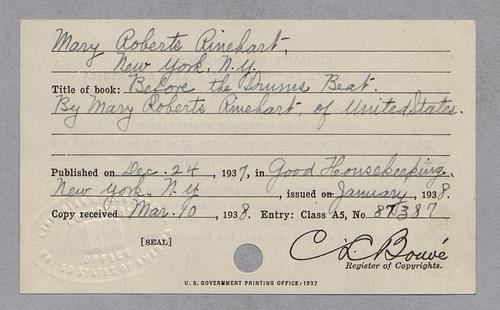 Mary Roberts Rinehart,
New York, N.Y.
Title of book: Before the Drums Beat.
By Mary Roberts Rinehart, of United States.
Published on Dec. 24, 1937, in Good Housekeeping.
New York, N.Y., issued on January, 1938.
Copy received Mar. 10, 1938. Entry: Class A5, No. 87387
[SEAL]
C L Bouvé
Register of Copyrights.
U. S. GOVERNMENT PRINTING OFFICE: 1937
OFFICE
UNITED STATES OF AMERICA